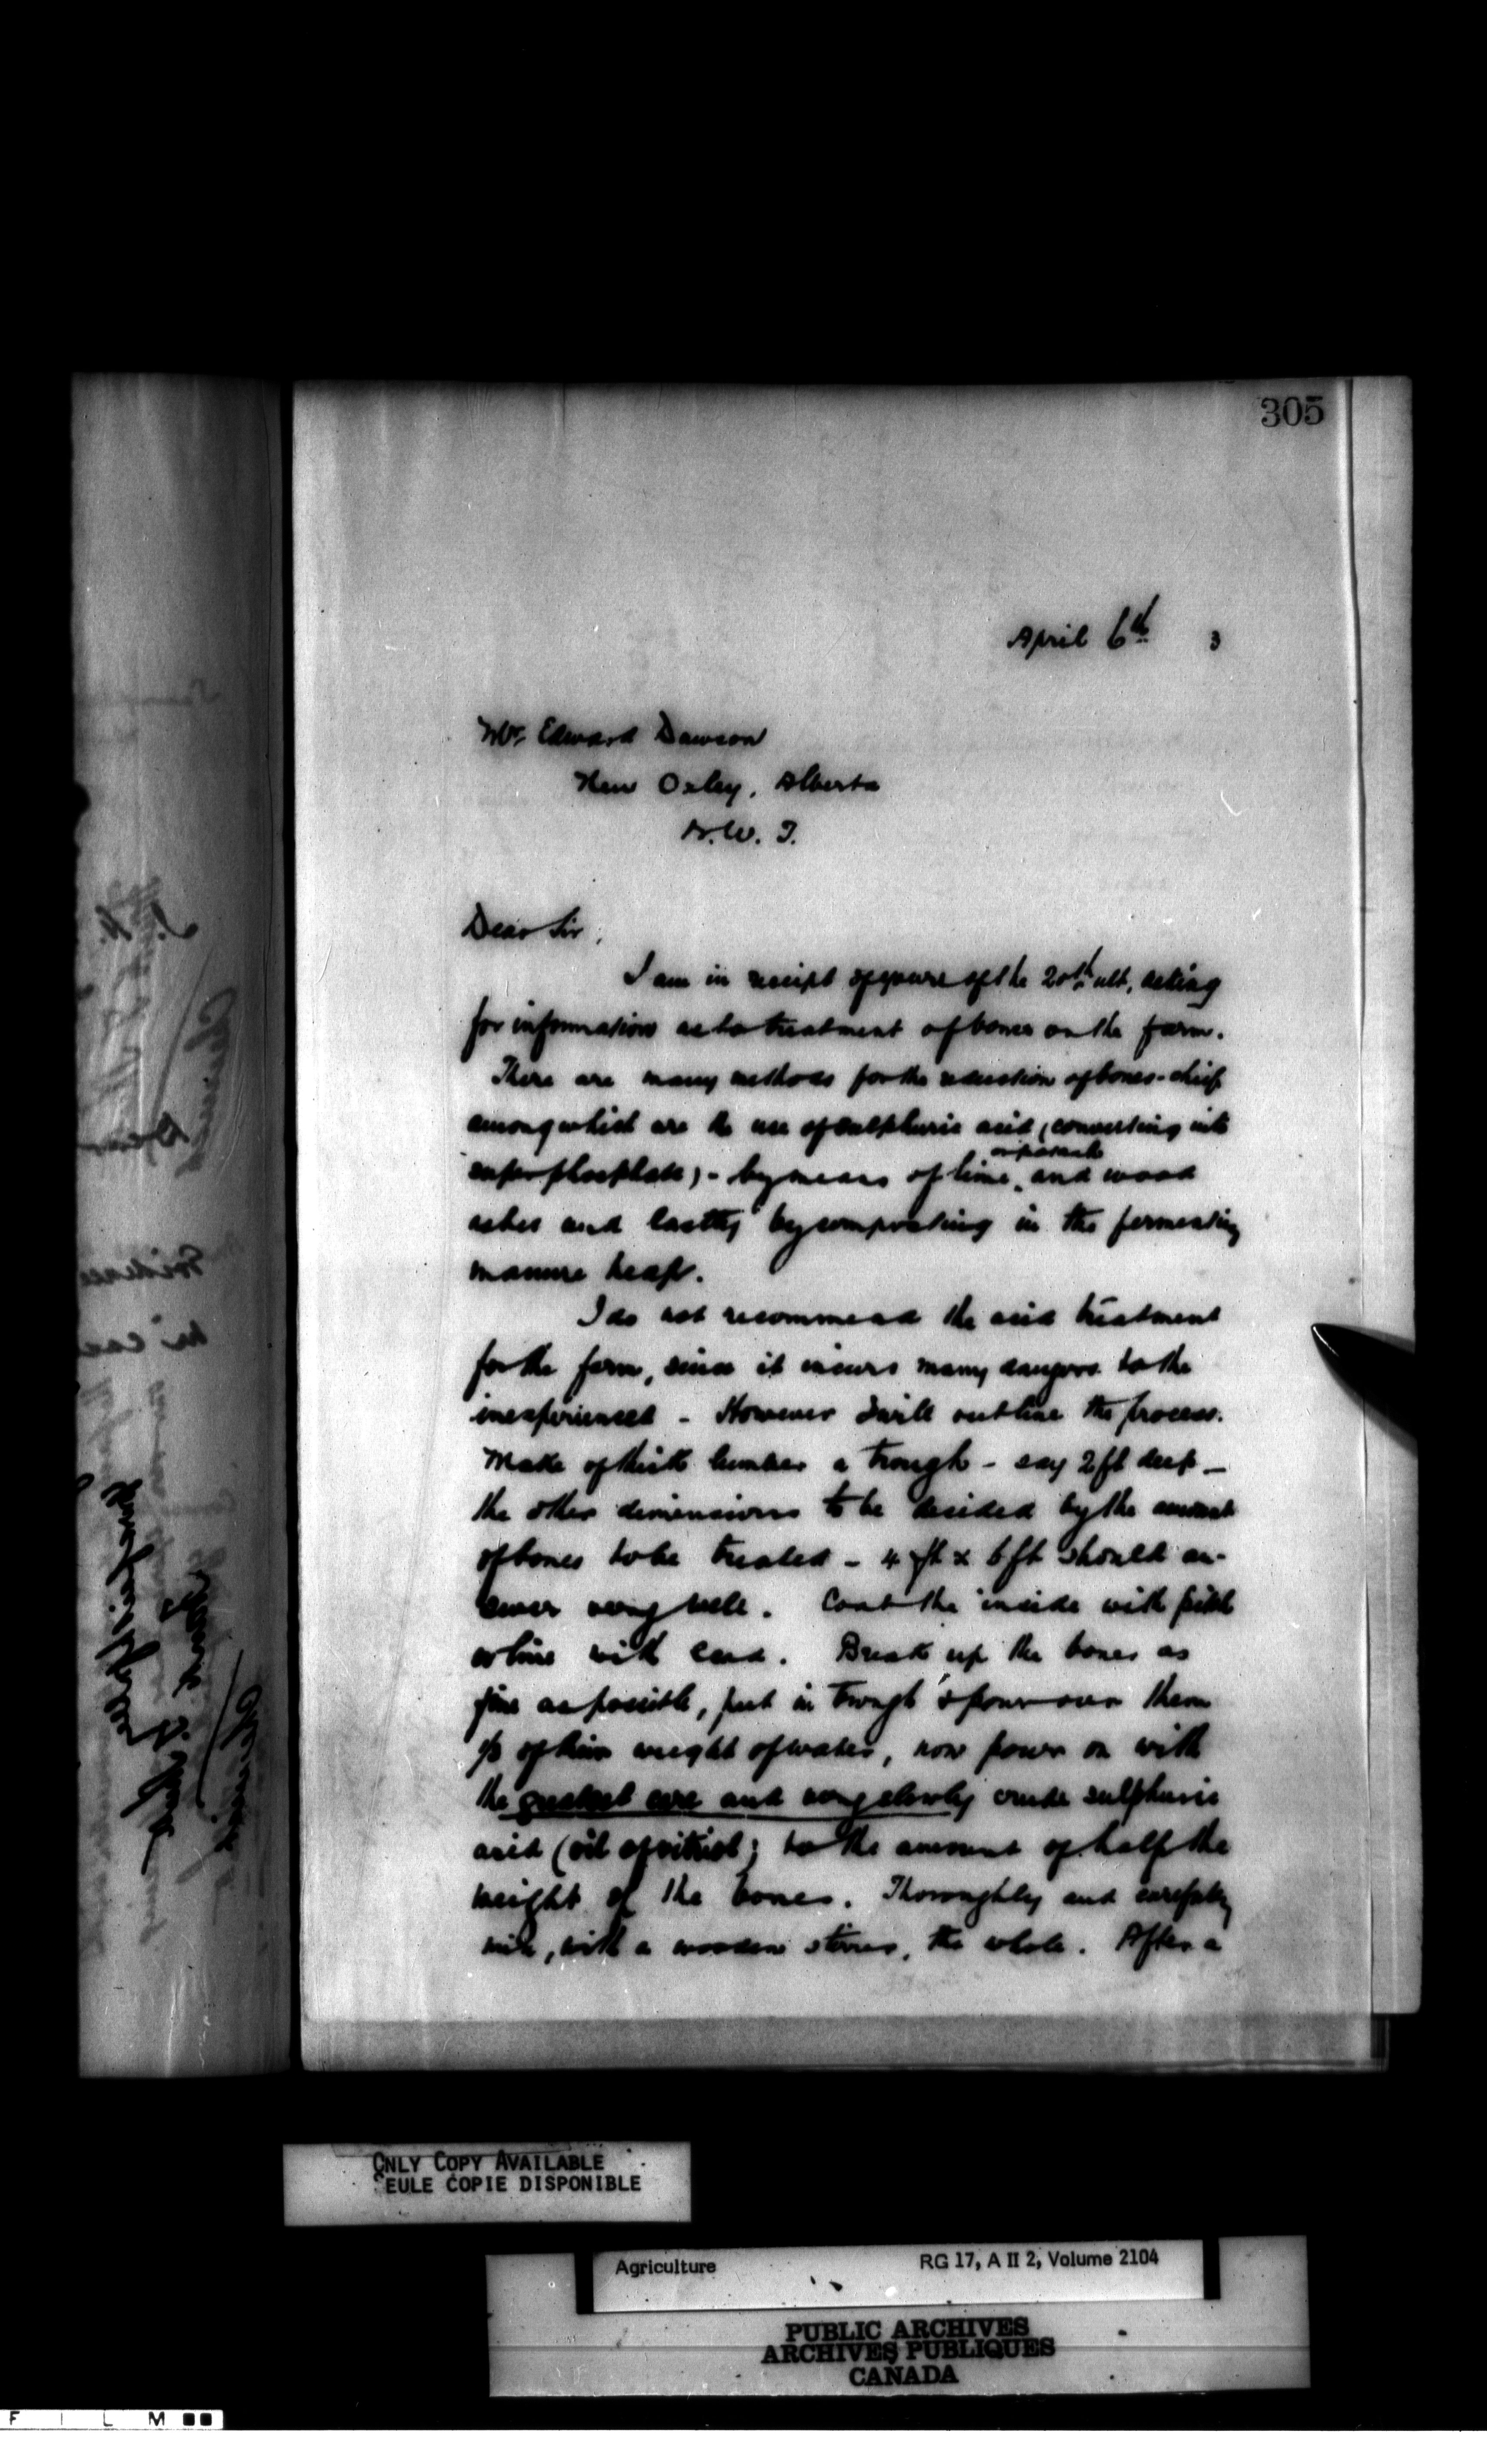 305
April 6th 3
Mr. Edward Dawson
New Oxley, Alberta
N.W.T.
Dear Sir,
I am in receipt of yours of the 20th ult, asking
for information as to treatment of bones on the farm.
There are many methods for the reduction of bones - chief
among which are the use of sulphuric acid (converting into
superphosphate) - by means of lime, and wood
or potash
ashes and lastly by composting in the fermenting
manure heap.
I do not recommend the acid treatment
for the farm, since it incurs many dangers to the
inexperienced - However I will outline the process.
Make of thick lumber a trough - say 2 ft deep -
the other dimensions to be decided by the amount
of bones to be treated - 4 ft x 6 ft should an-
swer very well. Coat the inside with pitch
or line with lead. Break up the bones as
fine as possible, put in trough & pour over them
1/3 of their weight of water, now pour on with
the greatest care and very slowly crude sulphuric
acid (oil of vitriol) to the amount of half the
weight of the bones. Thoroughly and carefully
mix, with a wooden stirrer, the whole. After a
ONLY COPY AVAILABLE
EULE COPIE DISPONIBLE
Agriculture RG 17, A II 2, Volume 2104
PUBLIC ARCHIVES
ARCHIVES PUBLIQUES
CANADA
F I L M